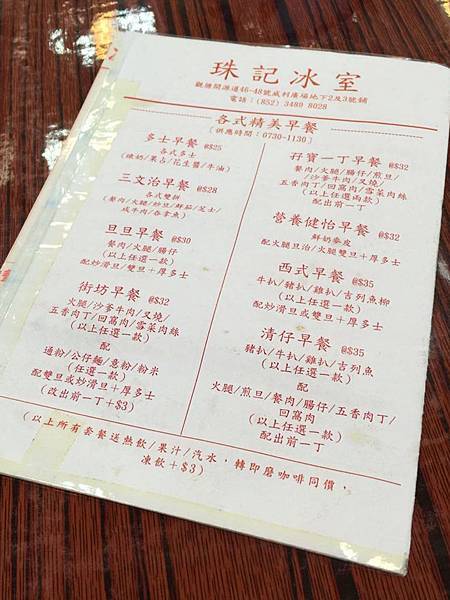 珠記冰室
觀塘開源道46-48號威利廣場地下2及3號鋪
電話：(852) 3480 8028
各式精美早餐
〔供應時間：0730-1130〕
多士早餐 @$25
各式多士
(煉奶/果占/花生醬/牛油)
三文治早餐 @$28
各式雙餅
(餐肉/火腿/炒旦/鮮茄/芝士/
咸牛肉/吞拿魚)
旦旦早餐 @$30
餐肉/火腿/腸仔
(以上任選一款)
配炒滑旦/雙旦＋厚多士
街坊早餐 @$32
火腿/沙爹牛肉/叉燒/
五香肉丁/回窩肉/雪菜肉絲
(以上任選一款)
配
通粉/公仔麵/意粉/粉米
(任選一款)
配雙旦或炒滑旦＋厚多士
(改出前一丁＋$3)
孖寶一丁早餐 @$32
餐肉/火腿/腸仔/煎旦/
/沙爹牛肉/叉燒/
五香肉丁/回窩肉/雪菜肉絲
(以上任選兩款)
配出前一丁
營養健怡早餐 @$32
鮮奶麥皮
配火腿旦治/火腿雙旦＋厚多士
西式早餐 @$35
牛扒/豬扒/雞扒/吉列魚柳
(以上任選一款)
配炒滑旦或雙旦＋厚多士
清仔早餐 @$35
豬扒/牛扒/雞扒/吉列魚
(以上任選一款)
配
火腿/煎旦/餐肉/腸仔/五香肉丁/
回窩肉
(以上任選一款)
配出前一丁
(以上所有套餐送熱飲/果汁/汽水，轉即磨咖啡同價，
凍飲＋$3)